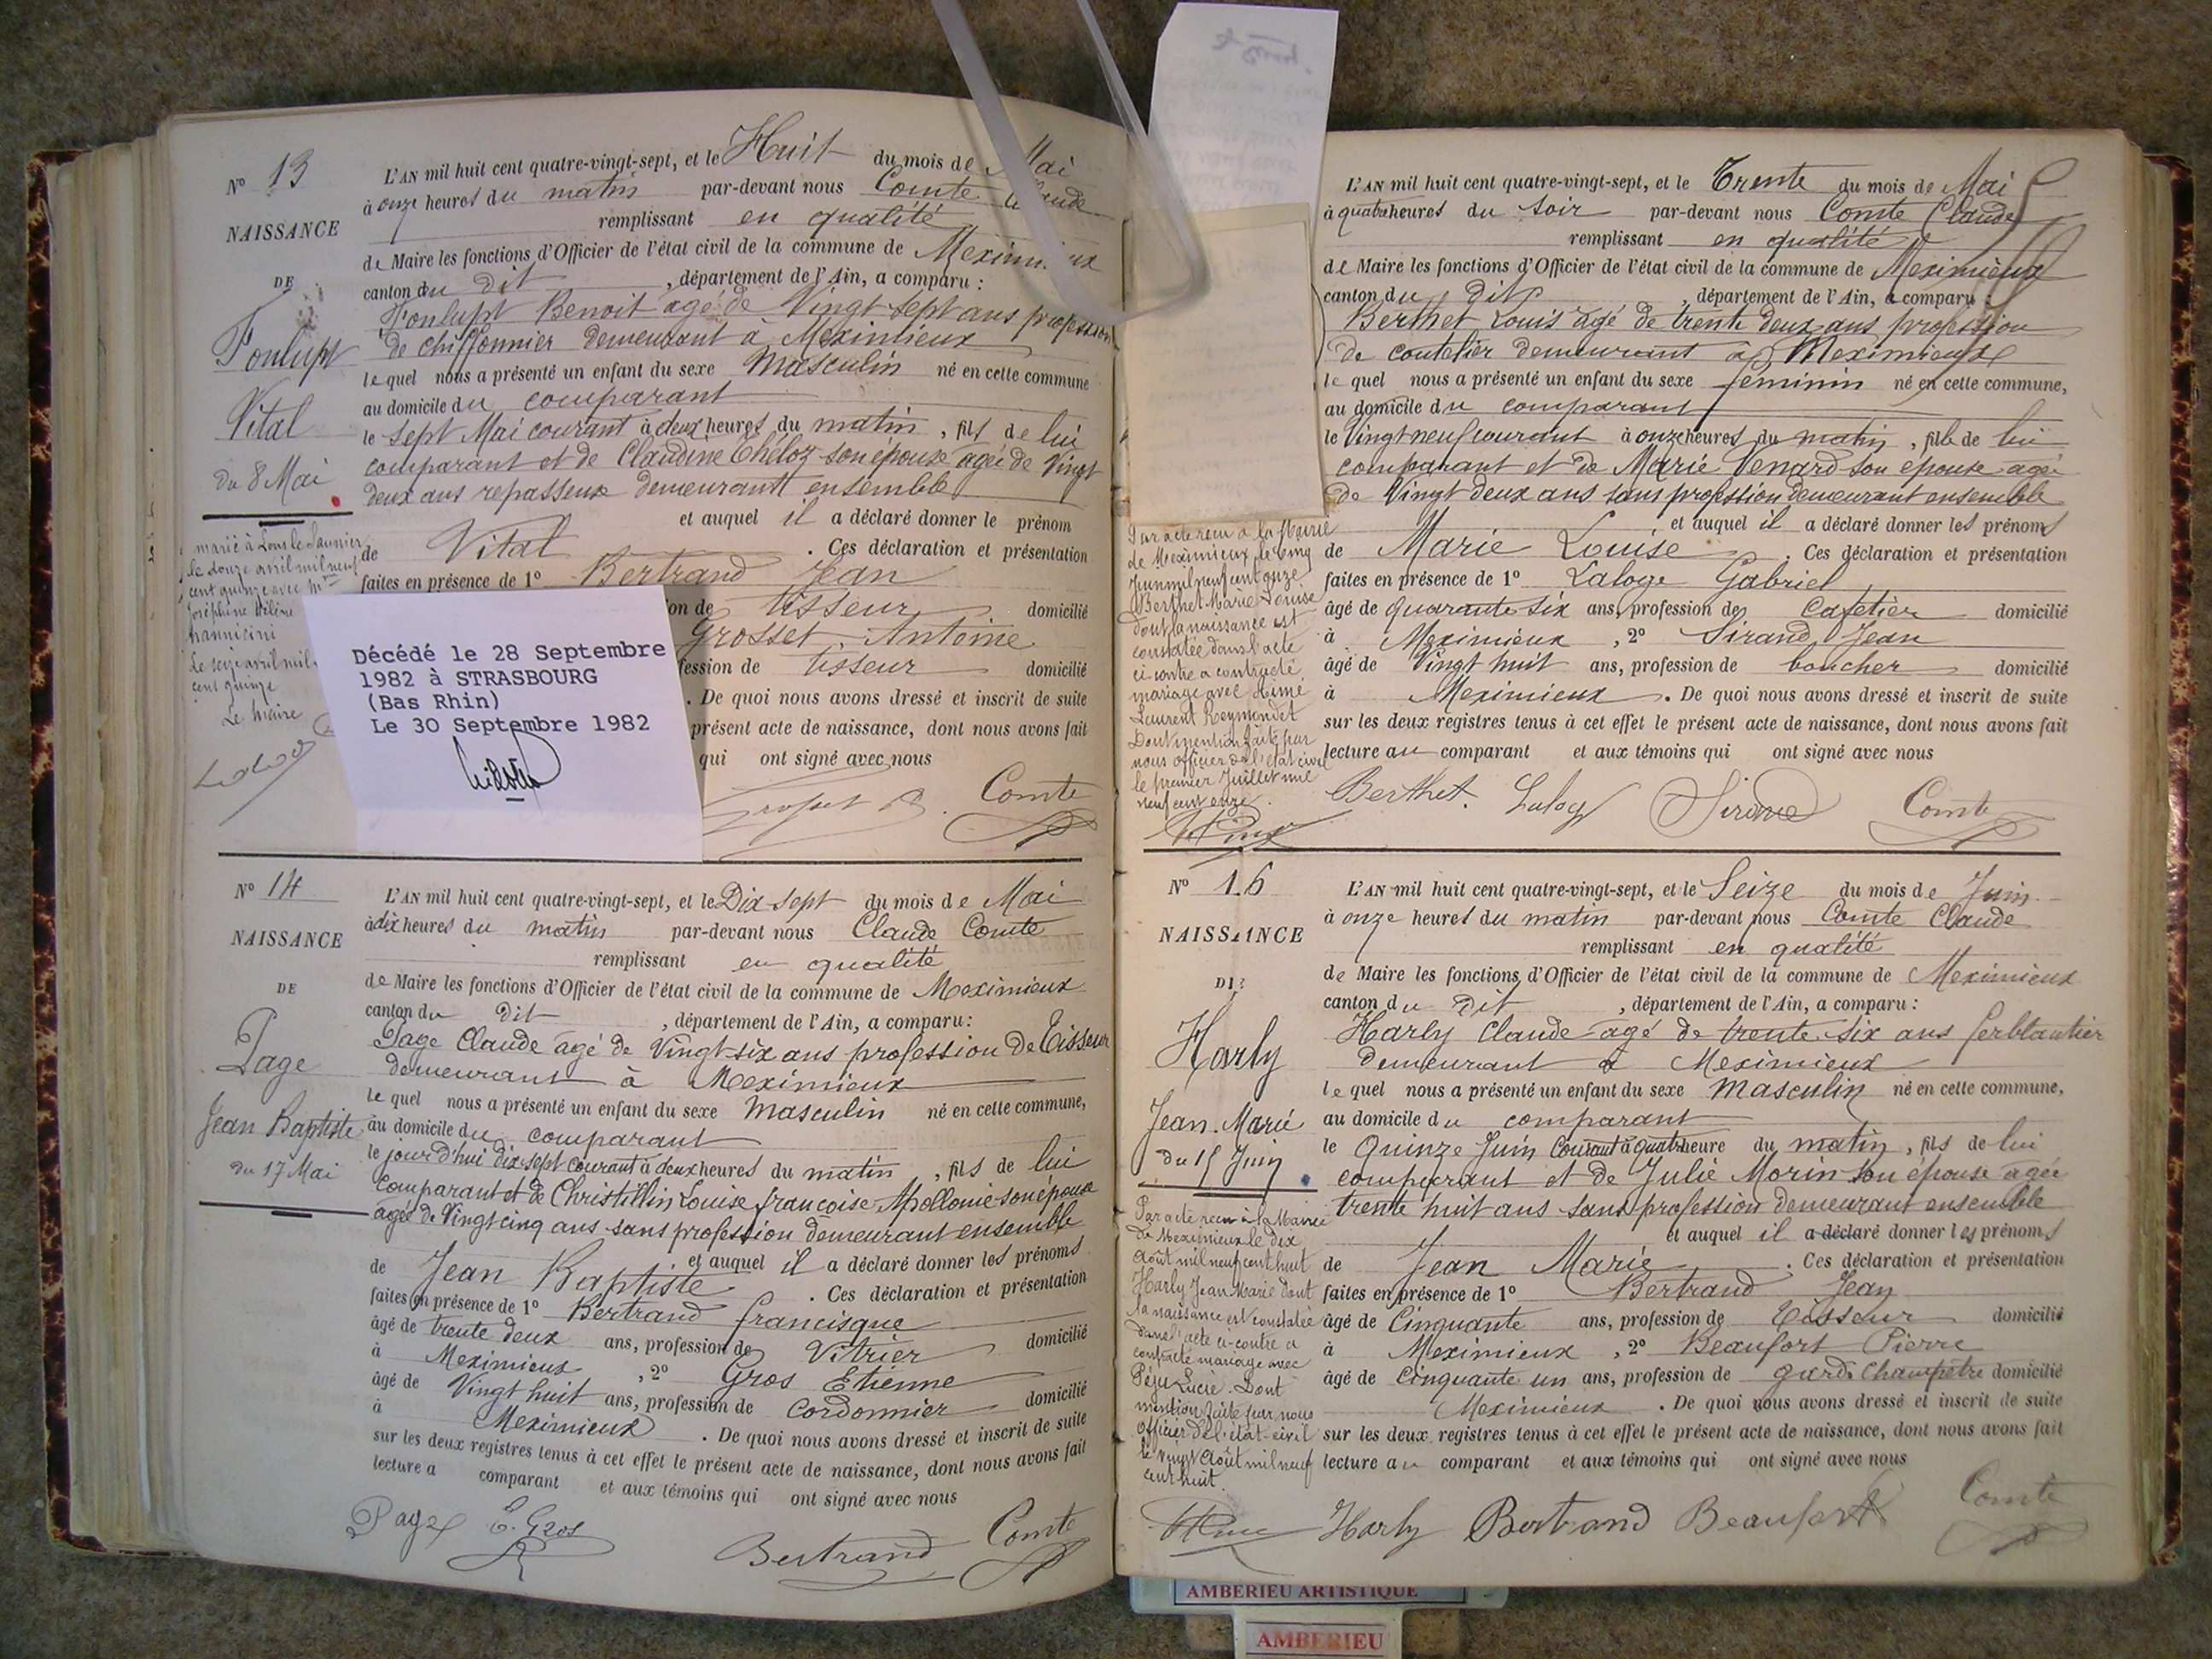 N° 13
NAISSANCE
DE
Vital
du 8 Mai
marié à Lons le Saunier
le douze avril mil neuf
cent quinze avec
Joséphine Hélène
Le seize avril mil
cent quinze
Le Maire
L'AN mil huit cent quatre-vingt-sept, et le Huit du mois de Mai
à onze heures du matin par-devant nous Comte Claude
remplissant en qualité
de Maire les fonctions d'Officier de l'état civil de la commune de
canton du dit , département de l'Ain, a comparu :
Benoit agé de Vingt sept ans profession
de chiffonnier demeurant à Meximieux
lequel nous a présenté un enfant du sexe Masculin né en cette commune
au domicile du comparant
le sept Mai courant à deux heures du matin , fils de lui
comparant et de Claudine Théloz son épouse agée de Vingt
deux ans repasseuse demeurant ensemble
et auquel il a déclaré donner le prénom
de Vital . Ces déclaration et présentation
faites en présence de 1° Bertrand Jean
on de tisseur domicilié
Grosset Antoine
fession de tisseur domicilié
. De quoi nous avons dressé et inscrit de suite
présent acte de naissance, dont nous avons fait
qui ont signé avec nous
Comte
Décédé le 28 Septembre
1982 à STRASBOURG
(Bas Rhin)
Le 30 Septembre 1982
N° 14
NAISSANCE
DE
Page
Jean Baptiste
du 17 Mai
L'AN mil huit cent quatre-vingt-sept, et le Dix sept du mois de Mai
à dix heures du matin par-devant nous Claude Comte
remplissant en qualité
de Maire les fonctions d'Officier de l'état civil de la commune de Meximieux
canton du dit , département de l'Ain, a comparu:
Page Claude agé de Vingt six ans profession de Tisseur
demeurant à Meximieux
lequel nous a présenté un enfant du sexe Masculin né en cette commune,
au domicile du comparant
le jourd'hui dix sept courant à deux heures du matin , fils de lui
comparant et de Christillin Louise françoise Apollonie son épouse
agée de Vingt cinq ans sans profession demeurant ensemble
et auquel il a déclaré donner les prénoms
de Jean Baptiste . Ces déclaration et présentation
faites en présence de 1° Bertrand francisque
âgé de trente deux ans, profession de Vitrier domicilié
à Meximieux , 2° Gros Etienne
âgé de Vingt huit ans, profession de Cordonnier domicilié
à Meximieux . De quoi nous avons dressé et inscrit de suite
sur les deux registres tenus à cet effet le présent acte de naissance, dont nous avons fait
lecture a comparant et aux témoins qui ont signé avec nous
Page E. Gros Bertrand Comte
L'AN mil huit cent quatre-vingt-sept, et le Trente du mois de Mai
à quatre heures du soir par-devant nous Comte Claude
remplissant en qualité
de Maire les fonctions d'Officier de l'état civil de la commune de Meximieux
canton du dit , département de l'Ain, a comparu :
Berthet Louis agé de trente deux ans profession
de coutelier demeurant à Meximieux
lequel nous a présenté un enfant du sexe féminin né en cette commune,
au domicile du comparant
le Vingt neuf courant à onze heures du matin , fille de lui
comparant et de Marie Venard son épouse agée
de Vingt deux ans sans profession demeurant ensemble
et auquel il a déclaré donner les prénoms
de Marie Louise . Ces déclaration et présentation
faites en présence de 1° Laloge Gabriel
âgé de quarante six ans, profession de Cafetier domicilié
à Meximieux , 2° Sirand Jean
âgé de Vingt huit ans, profession de boucher domicilié
à Meximieux . De quoi nous avons dressé et inscrit de suite
sur les deux registres tenus à cet effet le présent acte de naissance, dont nous avons fait
lecture au comparant et aux témoins qui ont signé avec nous
Berthet. Comte
Par acte reçu à la Mairie
de Meximieux le cinq
Juin mil neuf cent onze
Berthet Marie Louise
dont la naissance est
constatée dans l'acte
ci contre a contracté
mariage avec Aimé
Laurent Reymondet
Dont mention faite par
nous officier de l'état civil
le premier Juillet mil
neuf cent onze.
N° 16
NAISSANCE
DE
Harly
Jean Marie
du 15 Juin
L'AN mil huit cent quatre-vingt-sept, et le Seize du mois de Juin
à onze heures du matin par-devant nous Comte Claude
remplissant en qualité
de Maire les fonctions d'Officier de l'état civil de la commune de Meximieux
canton du dit , département de l'Ain, a comparu :
Harly Claude agé de trente six ans ferblantier
demeurant à Meximieux
lequel nous a présenté un enfant du sexe Masculin né en cette commune,
au domicile du comparant
le Quinze Juin Courant à quatre heure du matin , fils de lui
comparant et de Julie Morin son épouse agée
trente huit ans sans profession demeurant ensemble
et auquel il a déclaré donner les prénoms
de Jean Marie . Ces déclaration et présentation
faites en présence de 1° Bertrand Jean
âgé de Cinquante ans, profession de Tisseur domicilié
à Meximieux , 2° Beaufort Pierre
âgé de Cinquante un ans, profession de garde Champêtre domicilié
Meximieux . De quoi nous avons dressé et inscrit de suite
sur les deux registres tenus à cet effet le présent acte de naissance, dont nous avons fait
lecture au comparant et aux témoins qui ont signé avec nous
Harly Bertrand Beaufort Comte
Par acte reçu à la Mairie
de Meximieux le dix
Août mil neuf cent huit
Harly Jean Marie dont
la naissance est constatée
dans l'acte ci-contre a
contracté mariage avec
Péju Lucie. Dont
mention faite par nous
Officier de l'état-civil
le vingt Août mil neuf
cent huit.
AMBERIEU ARTISTIQUE
AMBERIEU